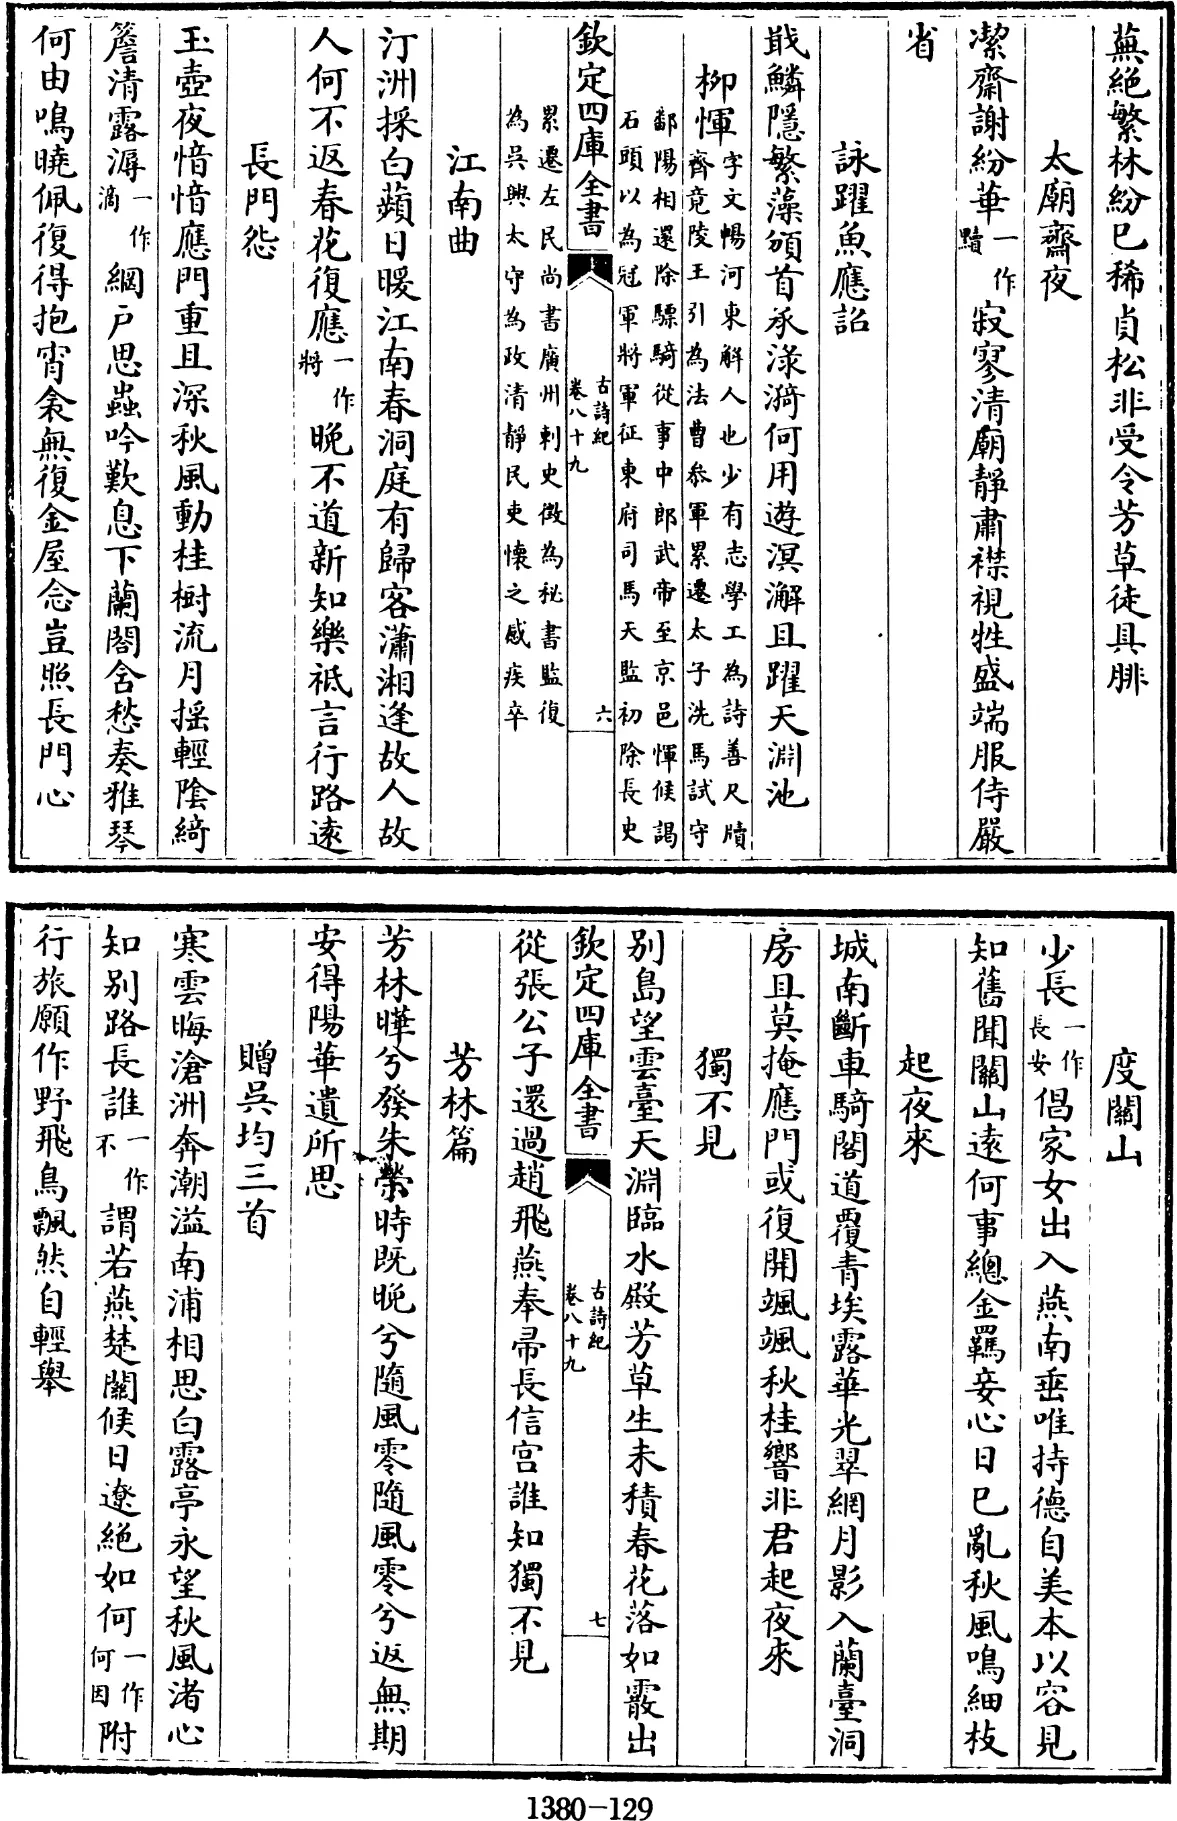 蕪絶繁林紛已稀貞松非受令芳草徒具腓
太廟齋夜
潔齋謝紛華一作黷寂寥清廟靜肅襟視牲盛端服侍嚴
省
詠躍魚應詔
戢鱗隱繁藻頒首承渌漪何用遊溟澥且躍天淵池
柳惲字文暢河東解人也少有志學工為詩善尺牘
齊竟陵王引為法曹叅軍累遷太子洗馬試守
鄱陽相還除驃騎從事中郎武帝至京邑惲候謁
石頭以為冠軍將軍征東府司馬天監初除長史
欽定四庫全書
古詩紀
卷八十九
六
累遷左民尚書廣州刺史徴為秘書監復
為吳興太守為政清靜民吏懷之感疾卒
江南曲
汀洲採白蘋日暖江南春洞庭有歸客瀟湘逢故人故
人何不返春花復應一作將晚不道新知樂祗言行路逺
長門怨
玉壺夜愔愔應門重且深秋風動桂樹流月揺輕陰綺
簷清露溽一作滴網戸思蟲吟歎息下蘭閣含愁奏雅琴
何由鳴曉佩復得抱宵衾無復金屋念豈照長門心
度關山
少長一作長安倡家女出入燕南垂唯持德自美本以容見
知舊聞關山逺何事總金羈妾心日已亂秋風鳴細枝
起夜來
城南斷車騎閣道覆青埃露華光翠網月影入蘭臺洞
房且莫掩應門或復開颯颯秋桂響非君起夜來
獨不見
别島望雲臺天淵臨水殿芳草生未積春花落如霰出
欽定四庫全書
古詩紀
卷八十九
七
從張公子還過趙飛燕奉帚長信宫誰知獨不見
芳林篇
芳林曄兮發朱榮時既晚兮隨風零隨風零兮返無期
安得陽華遺所思
贈吳均三首
寒雲晦滄洲奔潮溢南浦相思白露亭永望秋風渚心
知别路長誰一作不謂若燕楚關候日遼絶如何一作何因附
行旅願作野飛鳥飄然自輕舉
1380-129